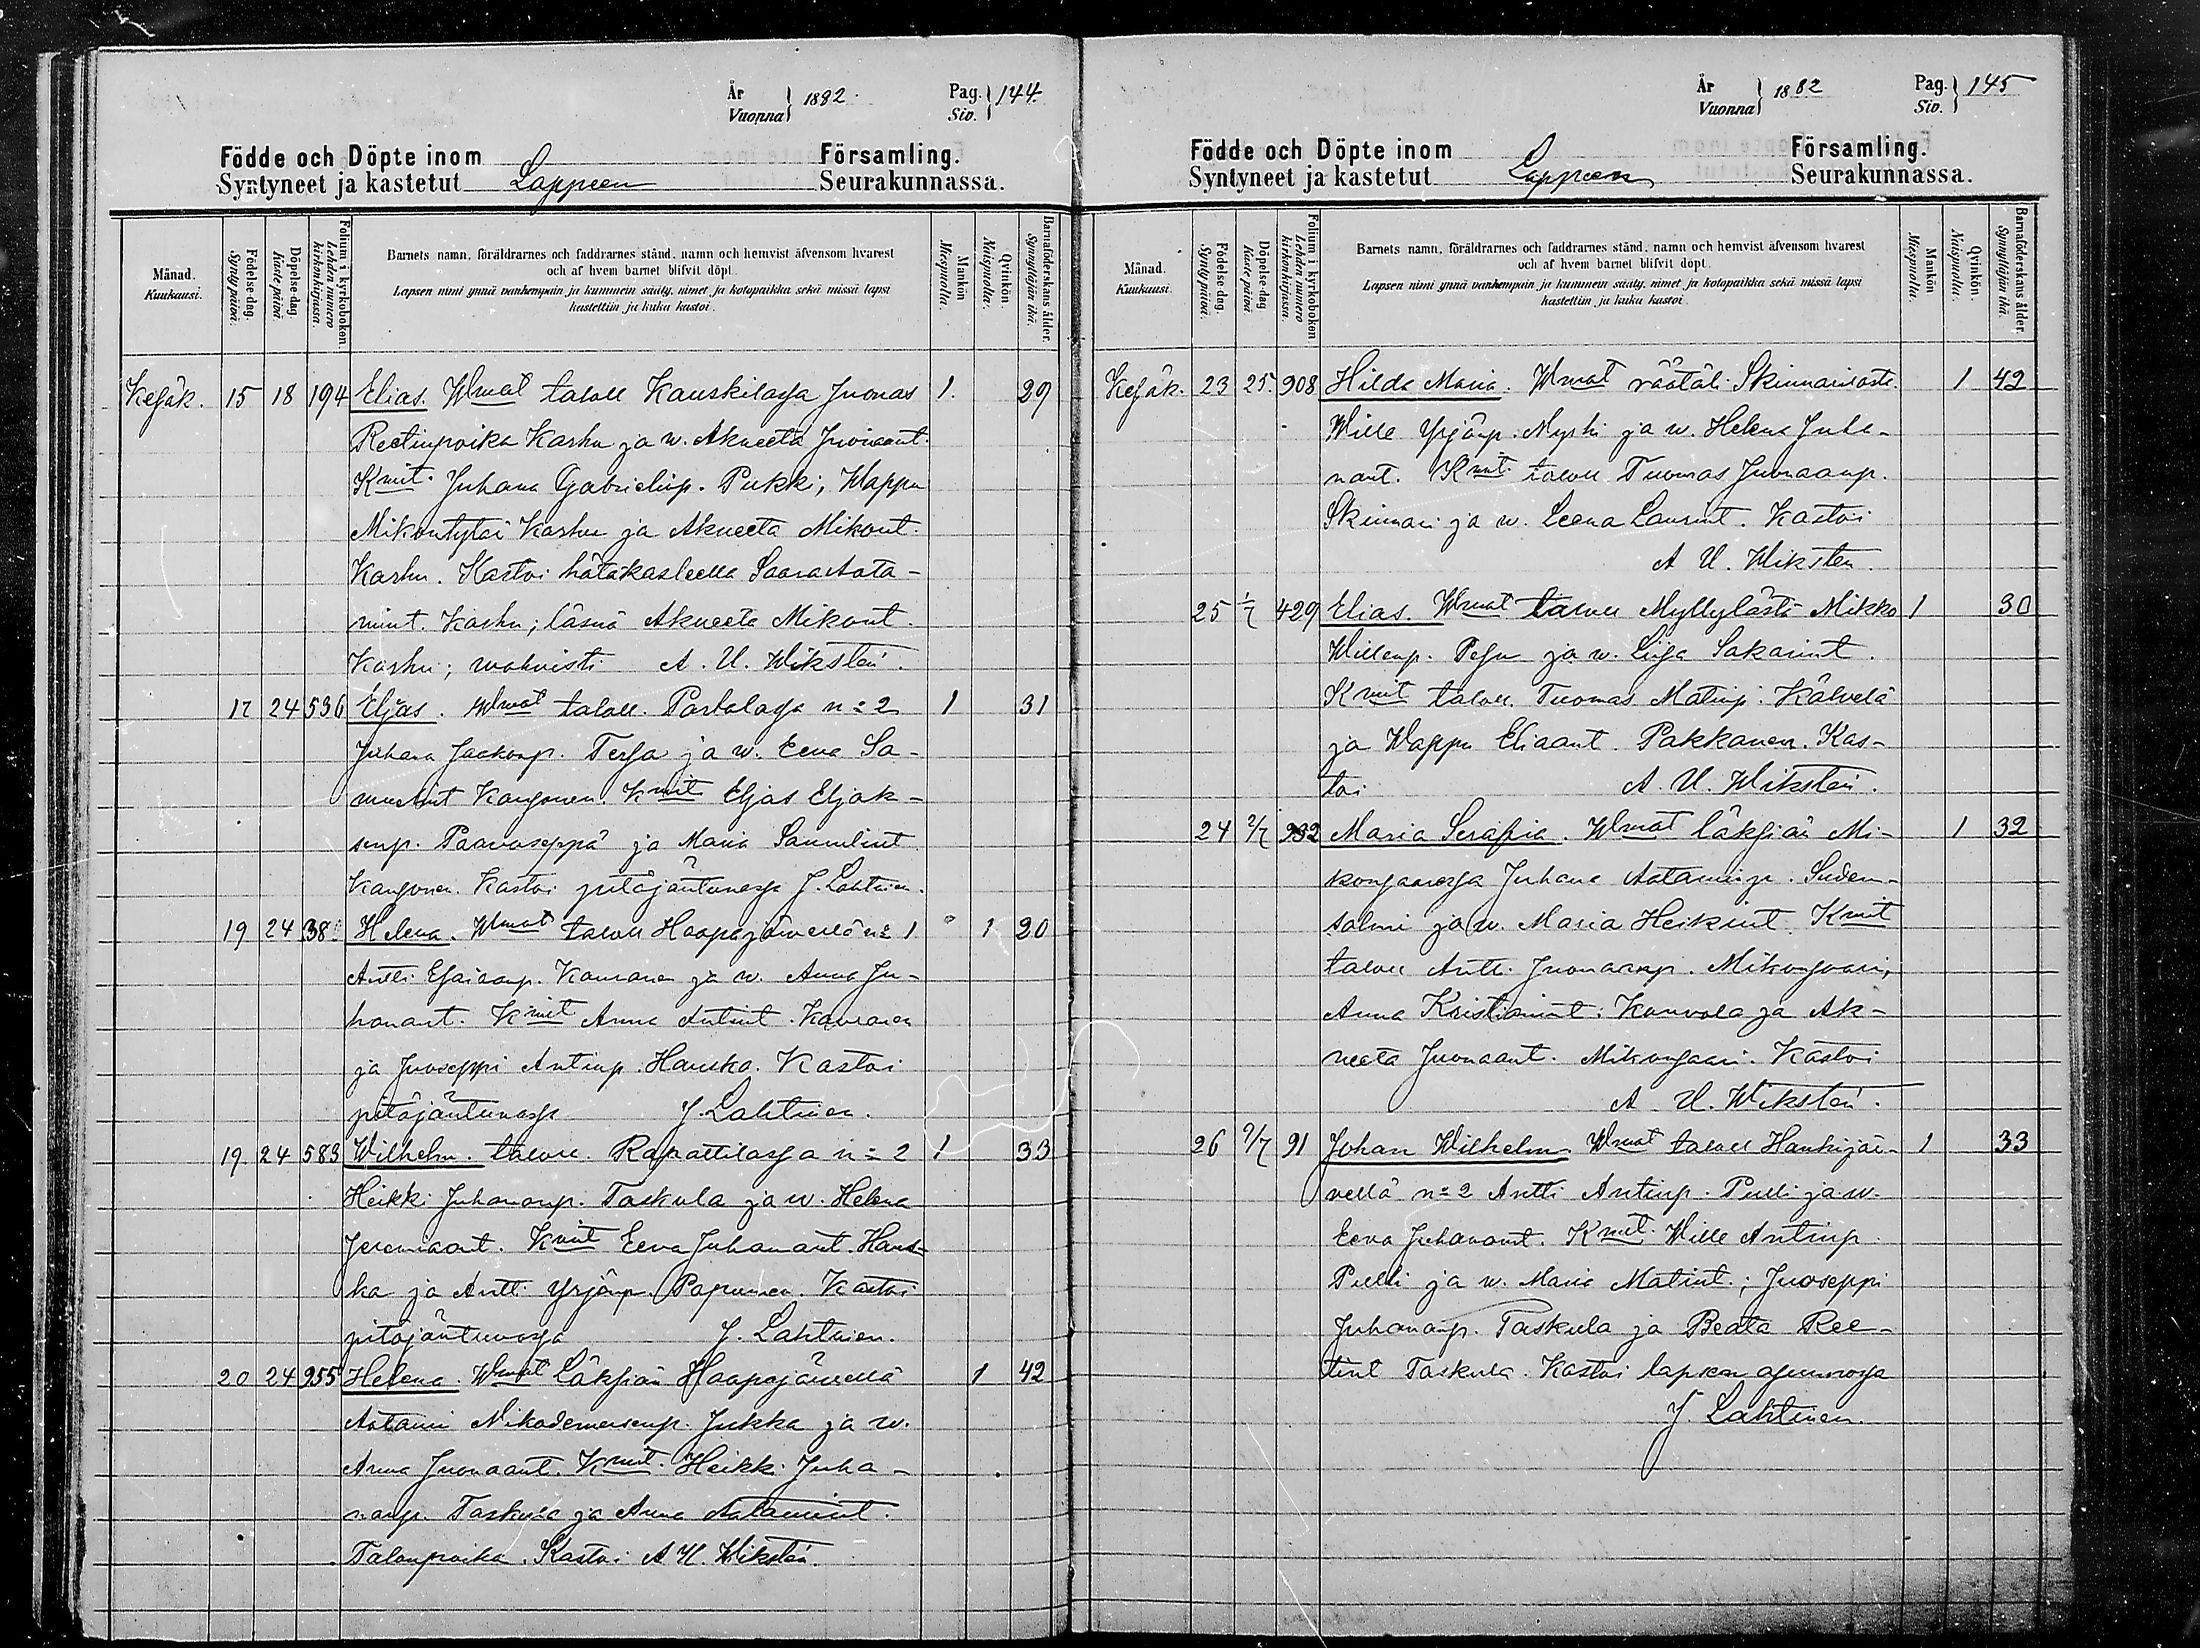 År
Vuonna 1882.
Pag.
Siv. 144.
Födde och Döpte inom Församling.
Syntyneet ja kastetut Lappeen Seurakunnassa.
Månad.
Kuukausi.
Födelse-dag.
Synty päivä.
Döpelse-dag.
Kaste päivä.
Folium i kyrkoboken.
Lehden numero
kirkonkirjassa.
Barnets namn, föräldrarnes och faddrarnes stånd, namn och hemvist äfvensom hvarest
och af hvem barnet blifvit döpt.
Lapsen nimi ynnä vanhempain ja kummein sääty, nimet ja kotopaikka sekä missä lapsi
kastettiin ja kuka kastoi.
Mankön
Miespuolia.
Qvinkön.
Naispuolia.
Barnaföderskans ålder.
Synnyttäjän ikä.
Kesäk. 15 18 194 Elias. Wmat taloll Kauskilassa Juonas 1. 29
Reetinpoika Karhu ja w. Akneeta Juonaant.
Kmit. Juhana Gabrielinp. Pukki, Wappu
Mikontytär Karhu ja Akneeta Mikont.
Karhu. Kastoi hätäkasteella Saara Aata-
mint. Karhu; läsnä Akneeta Mikont.
Karhu; wahvisti A. U. Wikstén.
17 24 536 Eljas. Wmat taloll. Partalassa n:=2 1 31
Juhana Jaakonp. Terssa ja w. Eeva Sa-
muelint Kangonen. Kmit Eljas Eljak-
senp. Paavoseppä ja Maria Samulint
Kangonen. Kastoi pitäjäntuvassa J. Lahtinen.
19 24 38 Helena. Wmat taloll Haapajärvellä n:= 1 1 20
Antti Esaiaanp. Kauranen ja w. Anna Ju-
hanant. Kmit Anna Antint. Kauranen
ja Juoseppi Antinp. Hansko. Kastoi
pitäjäntuvassa J. Lahtinen.
19. 24 583 Wilhelm. taloll. Rapattilassa n:= 2 1 33
Heikki Juhananp. Taskula ja w. Helena
Jeremiaant. Kmit Eeva Juhanant. Hans-
ka ja Antti Yrjönp. Papunen. Kastoi
pitäjäntuvassa J. Lahtinen.
20 24 955 Helena. Wmat Läksiän Haapajärvellä 1 42
Aatami Nikodemuksenp. Jukka ja w.
Anna Juonaant. Kmit. Heikki Juha-
nanp. Taskula ja Anna Aatamint.
Talonpoika. Kastoi A. U. Wikstén.
År
Vuonna 1882
Pag.
Siv. 145
Födde och Döpte inom Församling.
Syntyneet ja kastetut Lappeen Seurakunnassa.
Månad.
Kuukausi.
Födelse-dag.
Synty päivä.
Döpelse-dag
Kaste päivä
Folium i kyrkoboken
Lehden numero
kirkonkirjassa.
Barnets namn, föräldrarnes och faddrarnes stånd, namn och hemvist äfvensom hvarest
och af hvem barnet blifvit döpt.
Lapsen nimi ynnä vanhempain ja kummein sääty, nimet ja kotopaikka sekä missä lapsi
kastettiin ja kuka kastoi.
Mankön
Miespuolia.
Qvinkön.
Naispuolia.
Barnaföderskans ålder.
Synnyttäjän ikä.
Kesäk. 23 25. 908 Hilda Maria. Wmat räätäli Skinnarilasta 1 42
Wille Yrjönp. Myrhi ja w. Helena Juha-
nant. Kmit. taloll Tuomas Juonaanp.
Skinnari ja w. Leena Laurint. Kastoi
A. U. Wikstén.
25 1/7 429 Elias. Wmat taloll Myllylästä Mikko 1 30
Willenp. Pesu ja w. Liisa Sakarint.
Kmit taloll. Tuomas Matinp. Kälvelä
ja Wappu Eliaant. Pakkanen. Kas-
toi A. U. Wikstén.
24 2/7 932 Maria Serafia. Wmat läksiän Mi- 1 32
konsaaressa Juhana Aataminp. Suden-
salmi ja w. Maria Heikint. Kmit
taloll Antti Juonaanp. Mikonsaari,
Anna Kristianint. Kanvala ja Ak-
neeta Juonaant. Mikonsaari. Kastoi
A. U. Wikstén.
26 2/7 91 Johan Wilhelm. Wmat taloll Hanhijär- 1 33
vellä n:=2 Antti Antinp. Pulli ja w.
Eeva Juhanant. Kmit. Wille Antinp.
Pulli ja w. Maria Matint.; Juoseppi
Juhananp. Taskula ja Beata Ree-
tint Taskula. Kastoi lapsen asunnossa
J. Lahtinen.